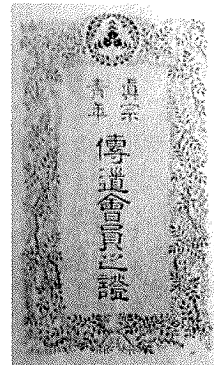 眞宗
青年
傳道會員之證